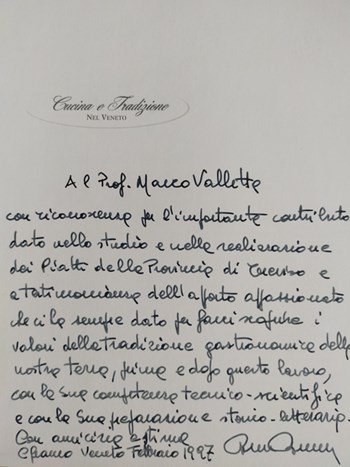 Cucina e Tradizione
NEL VENETO
Al Prof. Marco Vallette
con riconoscenza per l'importante contributo
dato nello studio e nella realizzazione
dei Piatti della Provincia di Treviso e
a testimonianza dell'apporto appassionato
che ci ha sempre dato per farci sapere i
valori della tradizione gastronomica della
nostra terra, prima e dopo questo lavoro,
con la sua competenza tecnico-scientifica
e con la sua preparazione storico-letteraria.
Con amicizia e stima
Veneto Febbraio 1997